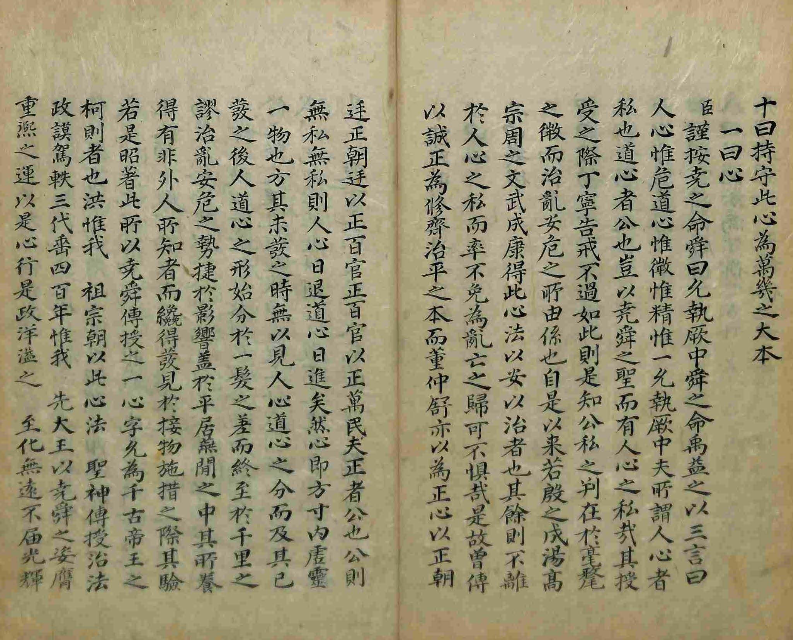 十曰持守此心為萬幾之大本
一曰心
臣謹按堯之命舜曰允執厥中舜之命禹益之以三言曰
人心惟危道心惟微惟精惟一允執厥中夫所謂人心者
私也道心者公也豈以堯舜之聖而有人心之私㢤其授
受之際丁寧告戒不過如此則是知公私之判在於毫釐
之微而治亂安危之所由係也自是以来若殷之成湯高
宗周之文武成康得此心法以安以治者也其餘則不離
於人心之私而率不免為亂亡之歸可不惧㢤是故曾傳
以誠正為修齊治平之本而董仲舒亦以為正心以正朝
廷正朝廷以正百官正百官以正萬民夫正者公也公則
無私無私則人心日退道心日進矣然心即方寸内虛靈
一物也方其未發之時無以見人心道心之分而及其已
發之後人道心之形始分於一髮之差而終至於千里之
謬治亂安危之勢捷於影響盖於平居燕閒之中其所養
得有非外人所知者而纔得發見於接物施措之際其驗
若是昭著此所以堯舜傳授之一心字允為千古帝王之
柯則者也洪惟我　祖宗朝以此心法　聖神傳授治法
政謨駕軼三代垂四百年惟我　先大王以堯舜之姿膺
重熙之運以是心行是政洋溢之　至化無遠不届光輝